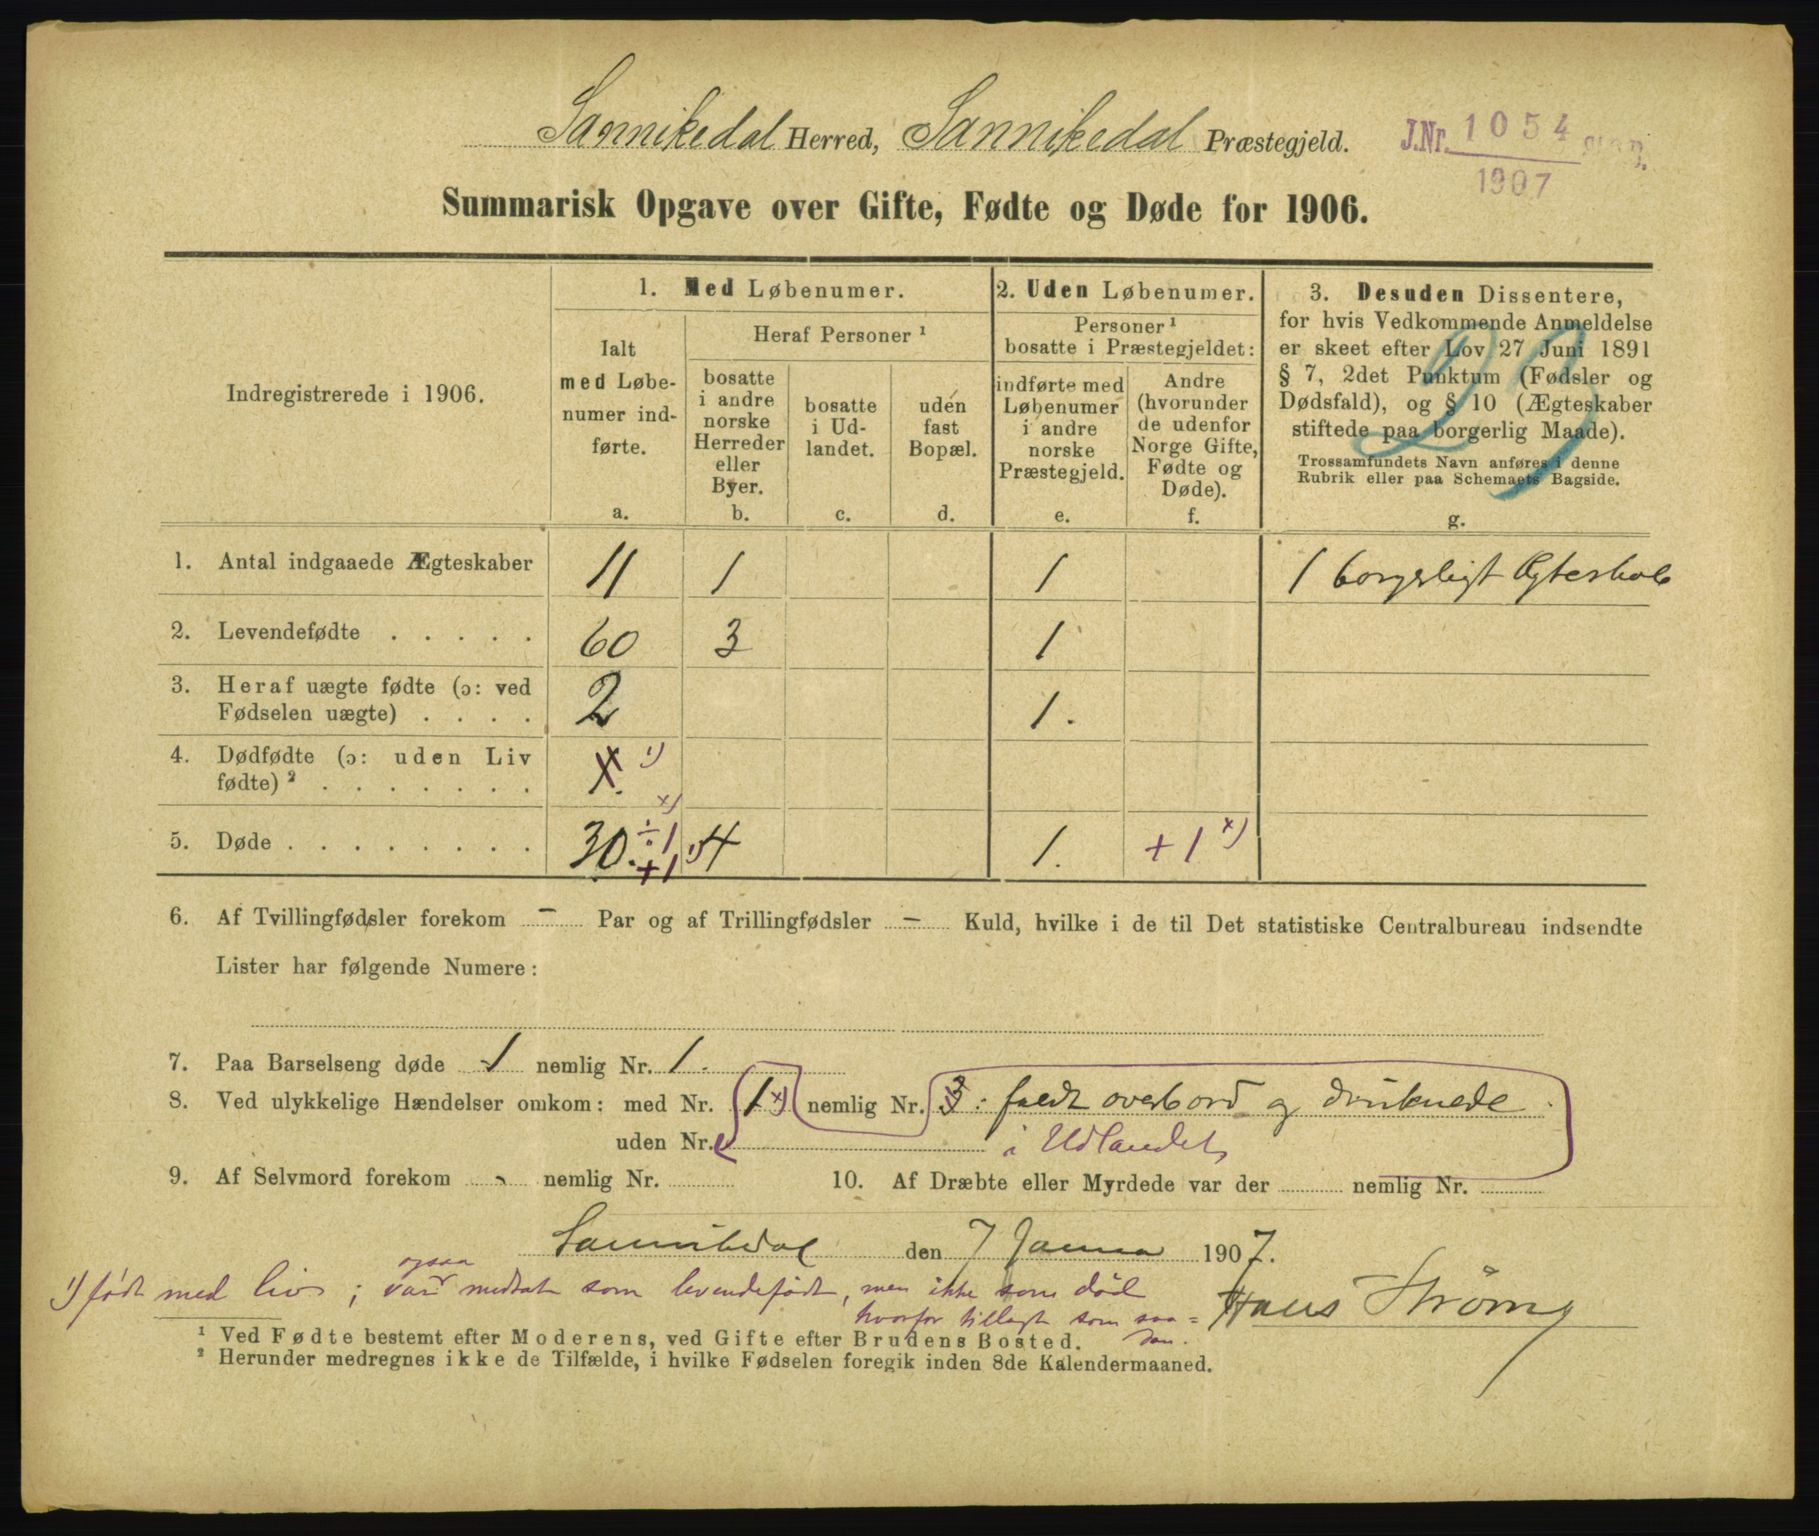 Sannikedal Herred, Sannikedal Præstegjeld.
J.Nr. 1054
1907
Summarisk Opgave over Gifte, Fødte og Døde for 1906.
Indregistrerede i 1906.
1. Med Løbenumer.
Ialt med Løbenumer indførte.
a.
Heraf Personer ¹
bosatte i andre norske Herreder eller Byer.
b.
bosatte i Udlandet.
c.
uden fast Bopæl.
d.
2. Uden Løbenumer.
Personer ¹ bosatte i Præstegjeldet:
indførte med Løbenumer i andre norske Præstegjeld.
e.
Andre (hvorunder de udenfor Norge Gifte, Fødte og Døde).
f.
3. Desuden Dissentere,
for hvis Vedkommende Anmeldelse
er skeet efter Lov 27 Juni 1891
§ 7, 2det Punktum (Fødsler og
Dødsfald), og § 10 (Ægteskaber
stiftede paa borgerlig Maade).
Trossamfundets Navn anføres i denne
Rubrik eller paa Schemaets Bagside.
g.
29
1. Antal indgaaede Ægteskaber 11 1 1 1 borgerligt Ægteskab
2. Levendefødte . . . . . 60 3 1
3. Heraf uægte fødte (ɔ: ved
Fødselen uægte) . . . . 2 1.
4. Dødfødte (ɔ: uden Liv
fødte) ² . . . . . . . X. ¹)
5. Døde . . . . . . . . 30. ÷1 x) +1 ¹) 4 1. +1 x)
6. Af Tvillingfødsler forekom – Par og af Trillingfødsler – Kuld, hvilke i de til Det statistiske Centralbureau indsendte
Lister har følgende Numere:
7. Paa Barselseng døde 1 nemlig Nr. 1.
8. Ved ulykkelige Hændelser omkom: med Nr. 1 x) nemlig Nr. 3. faldt overbord og druknede.
uden Nr. i Udlandet
9. Af Selvmord forekom - nemlig Nr. 10. Af Dræbte eller Myrdede var der nemlig Nr.
Sannikedal den 7 Januar 1907.
¹) født med liv; var ogsaa medtat som levendefødt, men ikke som død
hvorfor tillagt som saa=
dan.
Hans Strøm
¹ Ved Fødte bestemt efter Moderens, ved Gifte efter Brudens Bosted.
² Herunder medregnes ikke de Tilfælde, i hvilke Fødselen foregik inden 8de Kalendermaaned.